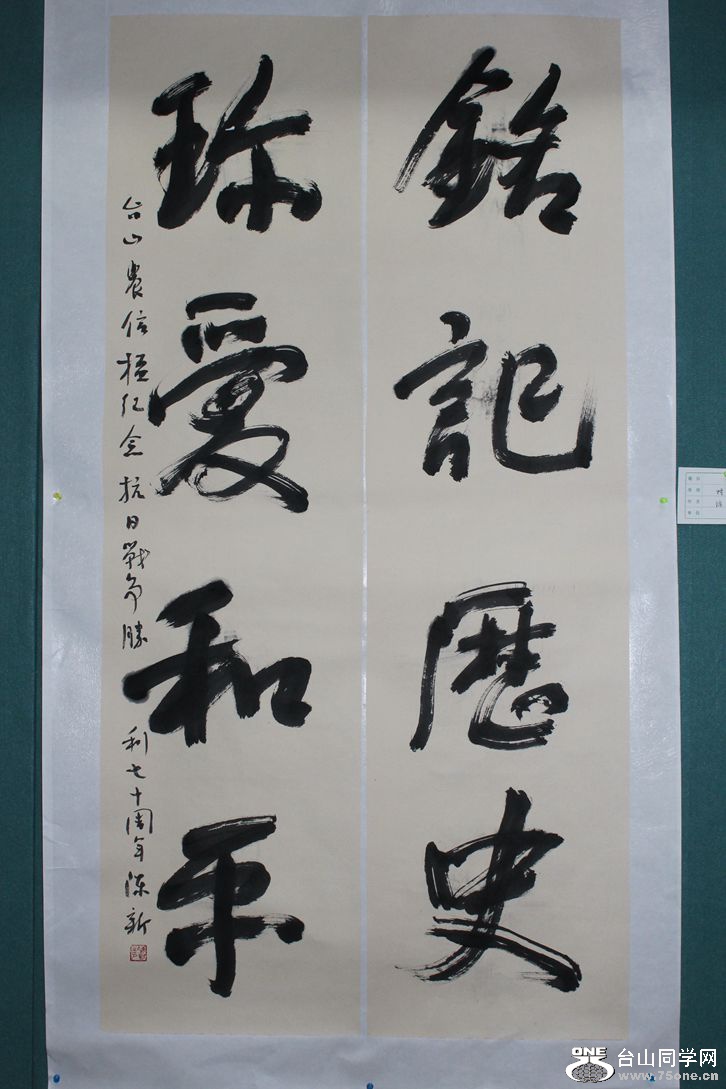 銘記歷史
珍愛和平
台山農信社纪念抗日戰争勝
利七十周年陳新
ONE
台山同学网
www.75one.cn